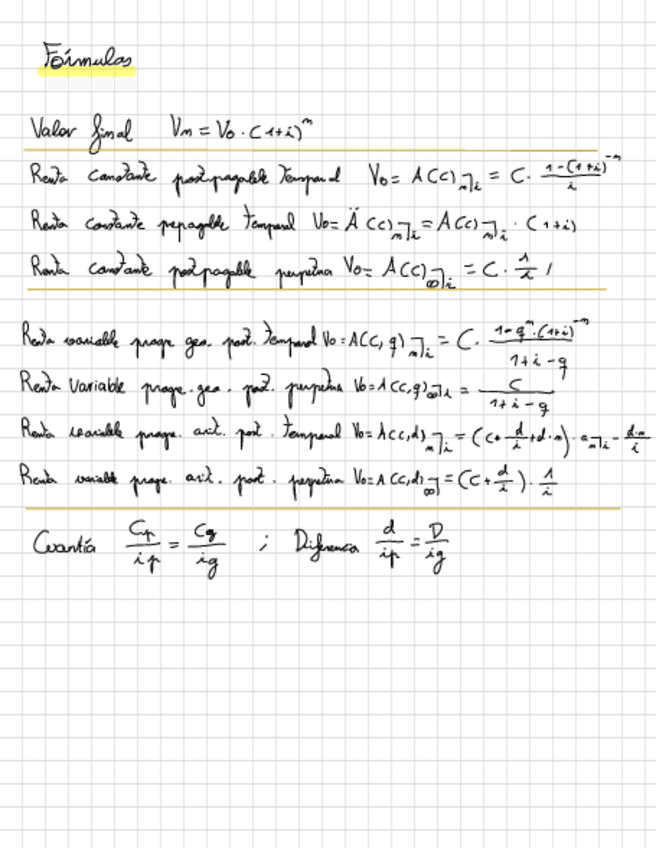 Fórmulas
Valor final Vn = Vo · (1+i)^n
Renta constante pospagable temporal Vo = A(c)n¬i = C · (1-(1+i)^-n)/i
Renta constante prepagable temporal Vo = Ä(c)n¬i = A(c)n¬i · (1+i)
Renta constante pospagable perpetua Vo = A(c)∞¬i = C · 1/i /
Renta variable progr geo. post. temporal Vo = A(C,q)n¬i = C · (1-q^n·(1+i)^-n)/(1+i-q)
Renta Variable progr. geo. post. perpetua Vo = A(C,q)∞¬i = C/(1+i-q)
Renta variable progr. arit. post. temporal Vo = A(C,d)n¬i = (C+d/i+d·n)·an¬i - d·n/i
Renta variable progr. arit. post. perpetua Vo = A(C,d)∞¬ = (C+d/i)·1/i
Cuantía Cp/ip = Cg/ig ; Diferencia d/ip = D/ig